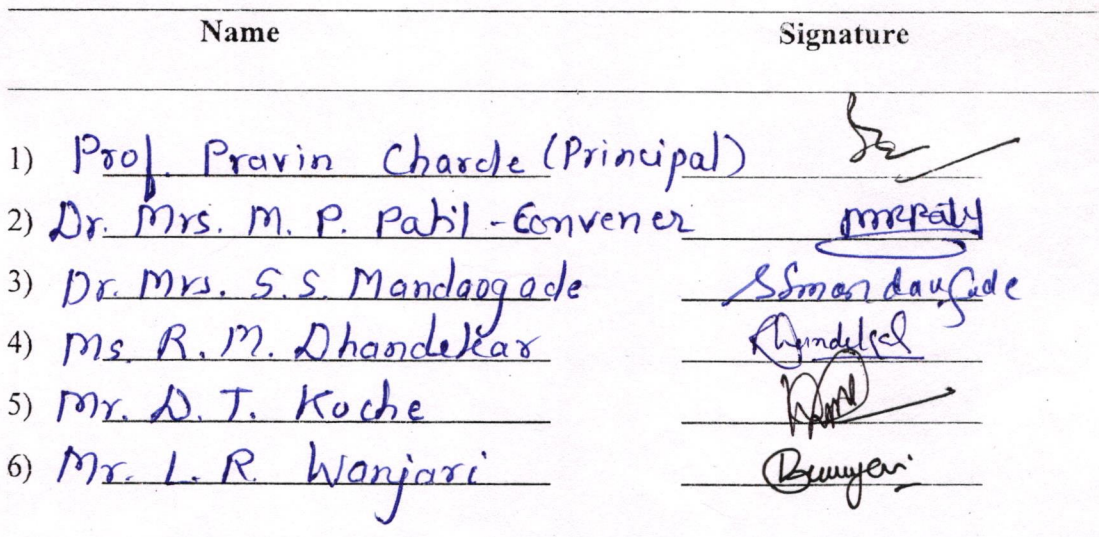 Name Signature
1) Prof. Pravin Charde (Principal)
2) Dr. Mrs. M. P. Patil - Convener
3) Dr. Mrs. S. S. Mandaogade SSmandaugade
4) Ms. R. M. Dhandekar
5) Mr. D. T. Koche
6) Mr. L. R. Wanjari